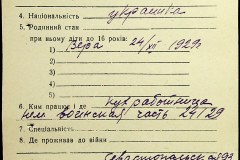 4. Національність украинка
5. Родинний стан
при ньому діти до 16 років:
Вера 24/XII 1929г
6. Ким працює і де кух работница
нем воинская часть 24129
7. Спеціальність
8. Де проживав до війни
Севастопольская